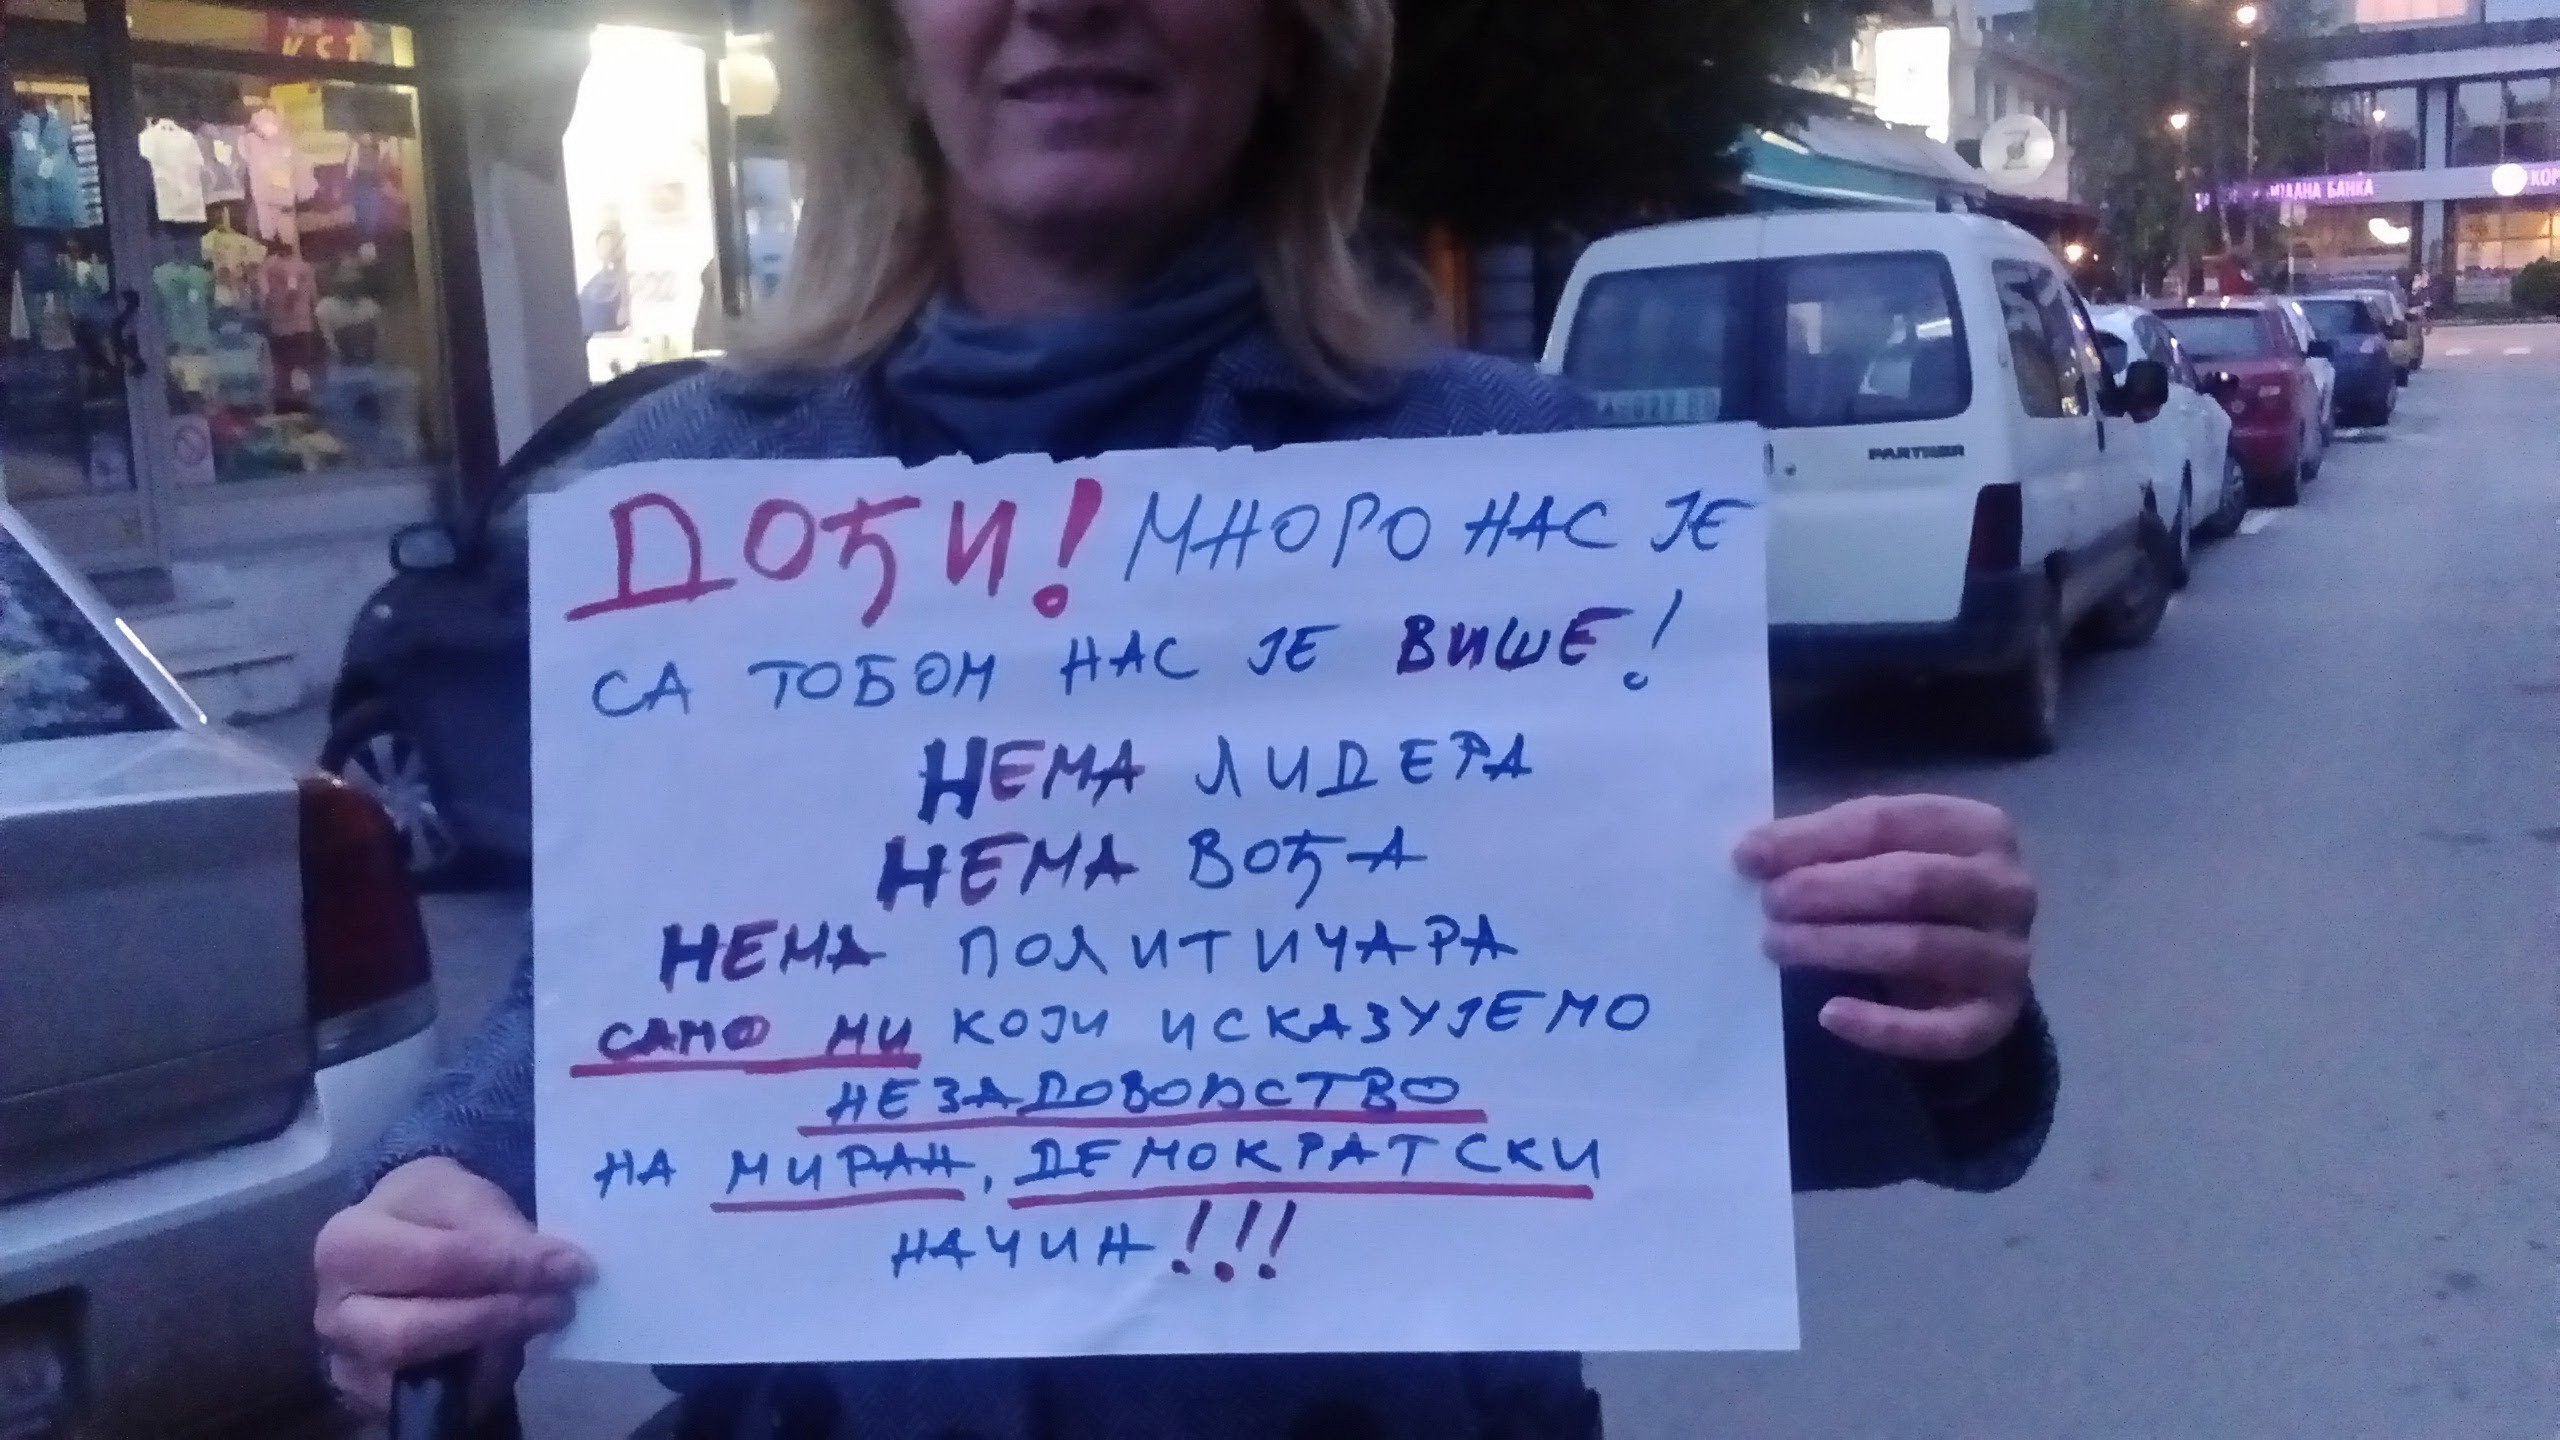 ДОЂИ! МНОГО НАС ЈЕ
СА ТОБОМ НАС ЈЕ ВИШЕ!
НЕМА ЛИДЕРА
НЕМА ВОЂА
НЕМА ПОЛИТИЧАРА
САМО МИ КОЈИ ИСКАЗУЈЕМО
НЕЗАДОВОЉСТВО
НА МИРАН, ДЕМОКРАТСКИ
НАЧИН!!!
PARTNER
БАНКА